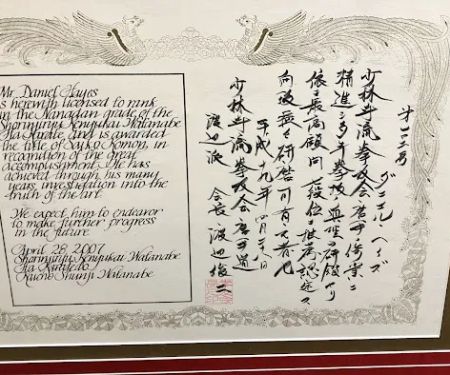 Mr. Daniel Hayes
is herewith licensed to rank
in the Nanadan grade of the
Shorinjiryu Kenyukai Watanabe
Ha Karate, and is awarded
the title of Saiko Komon, in
recognition of the great
accomplishment he has
achieved through his many
years investigation into the
truth of the art.
We expect him to endeavor
to make further progress
in the future
April 28, 2007
Shorinjiryu Kenyukai Watanabe
Ha Karatedo
Kaicho Shunji Watanabe
ダニエル・ヘイズ
少林寺流拳友会唐手術
精進シ多年拳技ノ真理ヲ研鑽セリ
依テ最高顧問七段位ニ推薦認定ス
向後
研
可有之者也
平成十九年四月二八日
少林寺流拳友会唐手術
渡辺派 会長 渡辺俊二